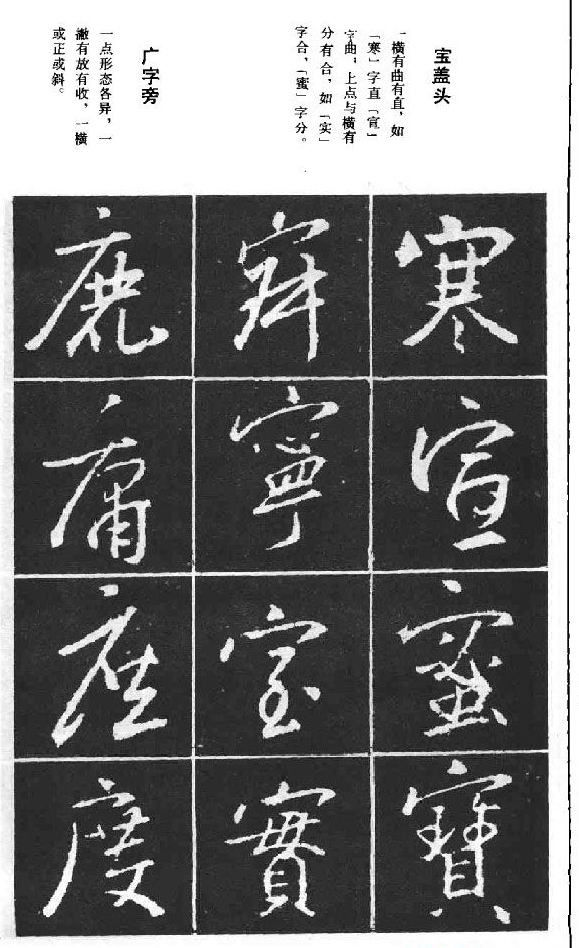 宝盖头
一横有曲有直,如
「寒」字直「宣」
字曲;上点与横有
分有合,如「实」
字合,「蜜」字分。
广字旁
一点形态各异,一
撇有放有收,一横
或正或斜。
寒
宣
蜜
寶
寧
室
實
鹿
庸
度